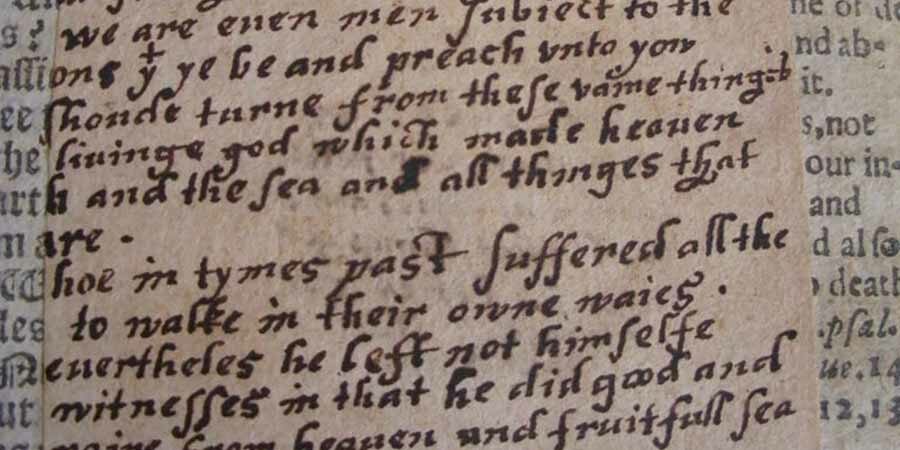 we are euen men subiect to the
ons yͭ ye be and preach vnto yow
shoude turne from these vaine things
liuinge god which made heauen
h and the sea and all thinges that
are .
hoe in tymes past suffered all the
to walke in their owne waies .
Neuertheles he left not himselfe
witnesses in that he did good and
from heauen and fruitfull sea
ne of
nd ab-
it.
s, not
our in-
and
d also
death
.psal.
ue.14
12,13